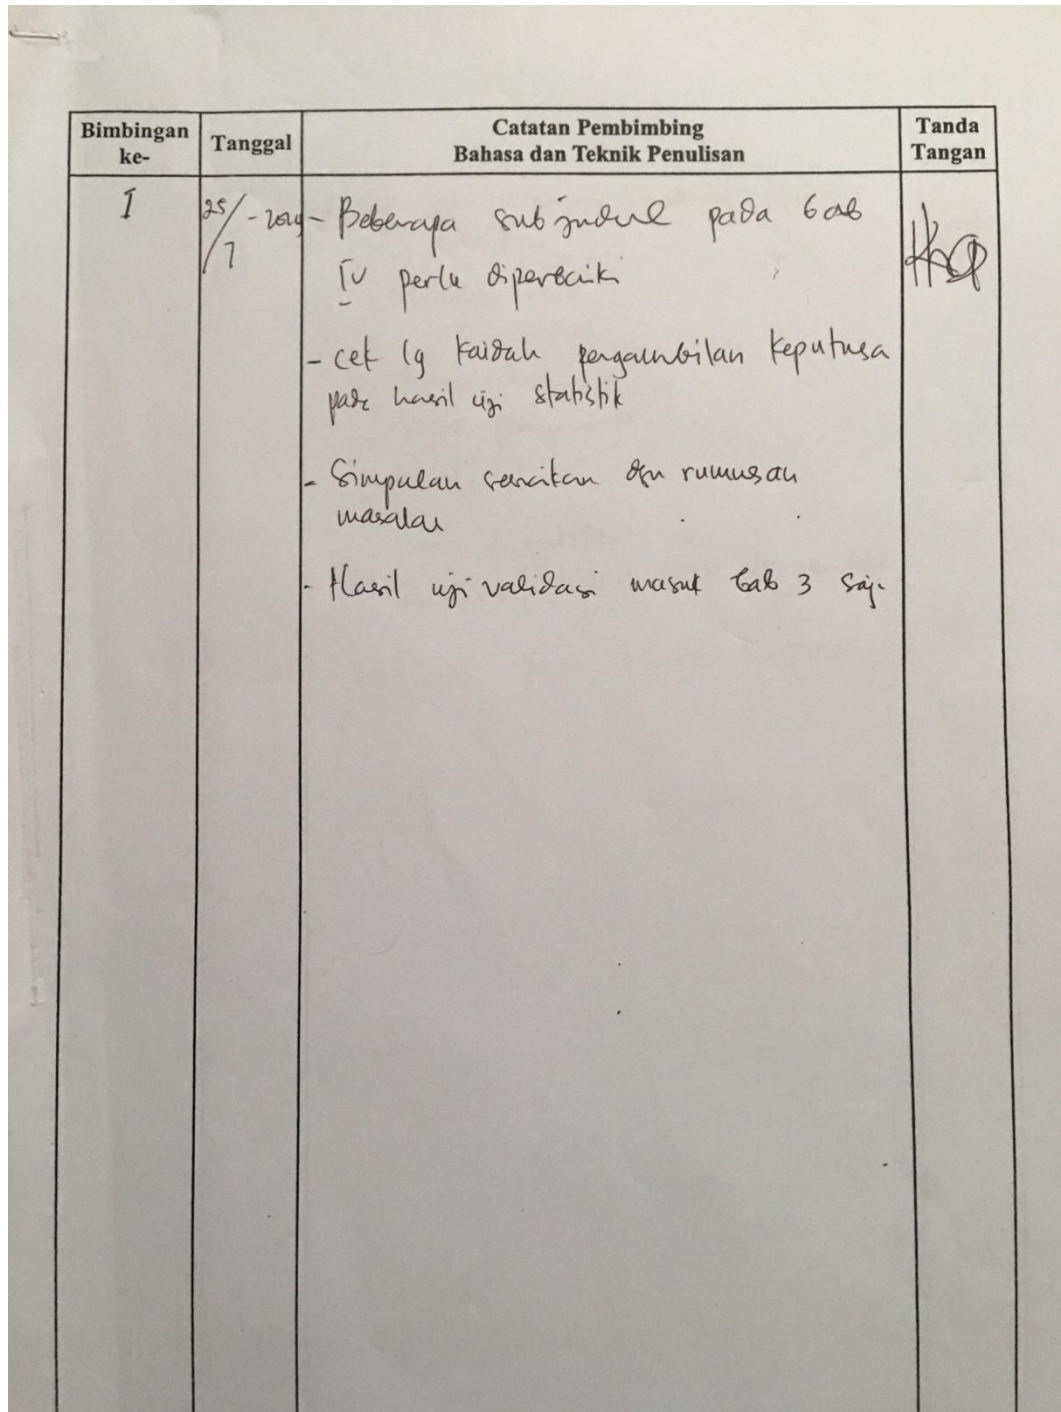 Bimbingan
ke-
Tanggal
Catatan Pembimbing
Bahasa dan Teknik Penulisan
Tanda
Tangan
I
25/7 - 2019
- Beberapa sub judul pada bab
IV perlu diperbaiki
- cek lg kaidah pengambilan keputusa
pada hasil uji statistik
- Simpulan sesuaikan dgn rumusan
masalah
- Hasil uji validasi masuk bab 3 saja